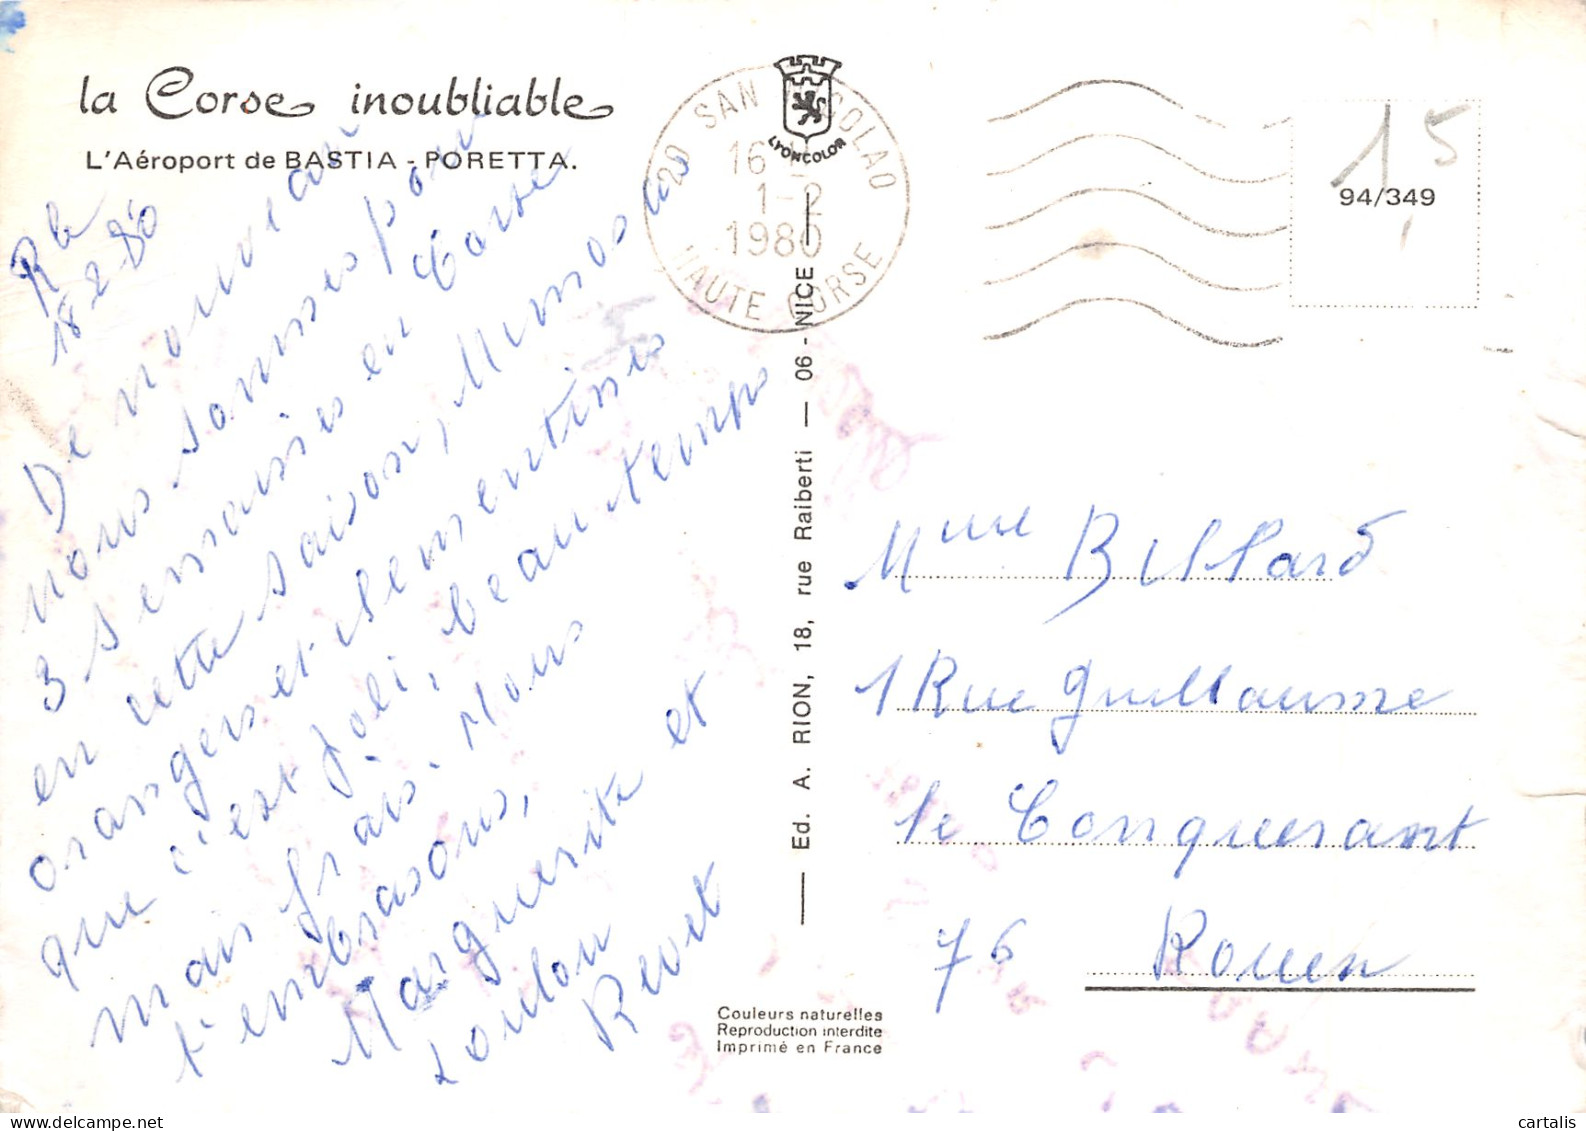 la Corse inoubliable
L'Aéroport de BASTIA - PORETTA.
Rle
18 2 80
De nouveau
nous sommes pour
3 semaines en Corse
en cette saison, Mimosas
orangers et clementines
que c'est joli, beau temps
mais frais. Nous
t'embrassons,
Marguerite et
Loulou
Revet
20 SAN NICOLAO
16 H
1-2
1980
HAUTE CORSE
LYONCOLOR
Ed. A. RION, 18, rue Raiberti — 06 - NICE
15
94/349
Mme Billard
1 Rue Guillaume
le Conquerant
76 Rouen
Couleurs naturelles
Reproduction interdite
Imprimé en France
cartalis